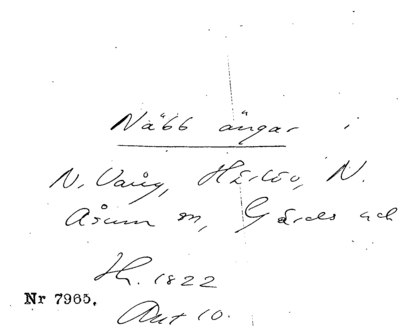 Näbb ängar i
N. Vång, Härlöv, N.
Åsum sn, Gärds och
Hr. 1822
Nr 7965.
Akt 10.